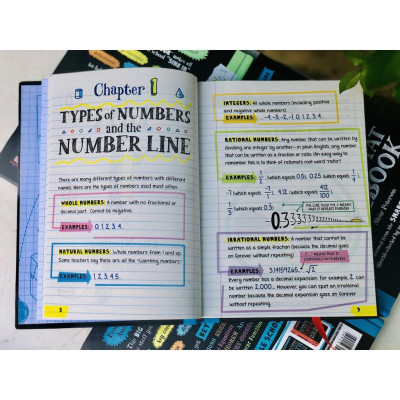 Chapter 1
TYPES of NUMBERS
and the
NUMBER LINE
There are many different types of numbers with different
names. Here are the types of numbers used most often:
WHOLE NUMBERS: A number with no fractional or
decimal part. Cannot be negative.
EXAMPLES: 0, 1, 2, 3, 4...
NATURAL NUMBERS: Whole numbers from 1 and up.
Some teachers say these are all the "counting numbers."
EXAMPLES: 1, 2, 3, 4, 5...
2
INTEGERS: All whole numbers (including positive
and negative whole numbers).
EXAMPLES: ...-4, -3, -2, -1, 0, 1, 2, 3, 4...
RATIONAL NUMBERS: Any number that can be written by
dividing one integer by another—in plain English, any number
that can be written as a fraction or ratio. (An easy way to
remember this is to think of rational's root word "ratio".)
EXAMPLES: 1/2 (which equals 0.5), 0.25 (which equals 1/4),
-7 (which equals -7/1), 4.12 (which equals 412/100),
1/3 (which equals 0.3)
THE LINE OVER THE 3 MEANS
THAT IT REPEATS FOREVER!
0.33333333
IRRATIONAL NUMBERS: A number that cannot be
written as a simple fraction (because the decimal goes
on forever without repeating).
"..." MEANS THAT IT
CONTINUES ON FOREVER
EXAMPLES: 3.14159265..., √2
Every number has a decimal expansion. For example, 2 can
be written 2.000... However, you can spot an irrational
number because the decimal expansion goes on forever
without repeating.
3